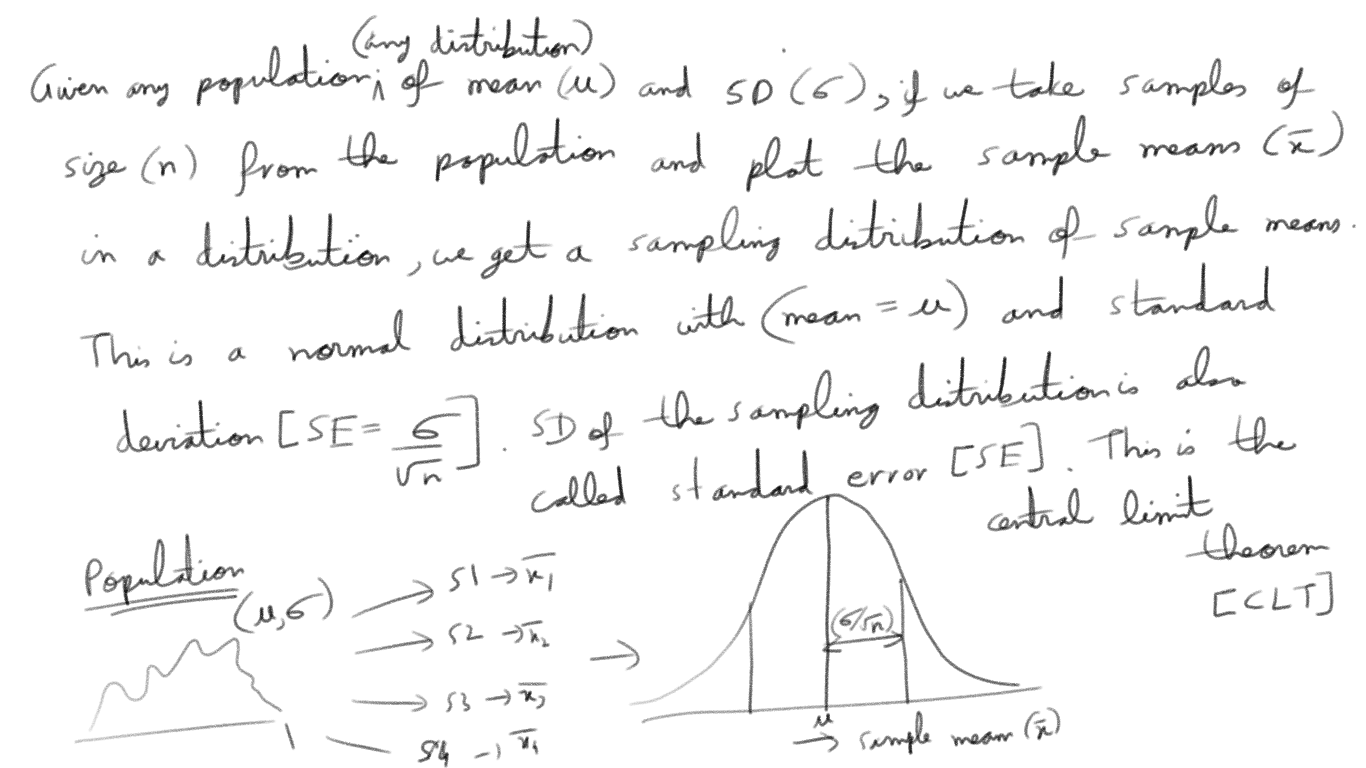 (any distribution)
Given any population, of mean (μ) and SD (σ), if we take samples of
size (n) from the population and plot the sample means (x̄)
in a distribution, we get a sampling distribution of sample means.
This is a normal distribution with (mean = μ) and standard
deviation [SE = σ/√n]. SD of the sampling distribution is also
called standard error [SE]. This is the
central limit
theorem
[CLT]
Population
(μ,σ)
S1 → x̄₁
S2 → x̄₂
S3 → x̄₃
S4 → x̄₄
(σ/√n)
μ
→ sample mean (x̄)